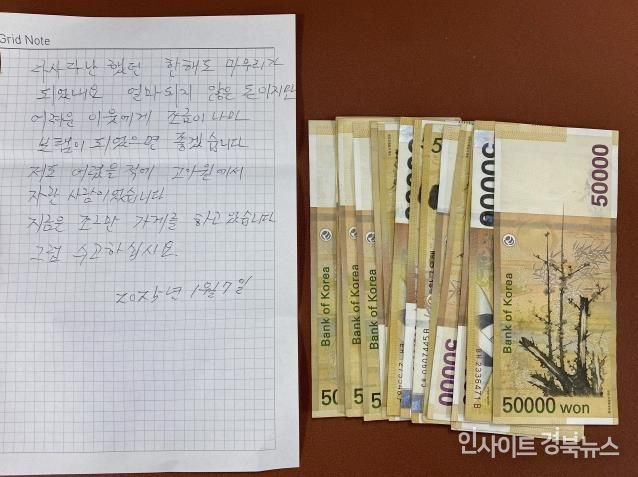 Grid Note
다사다난 했던 한해도 마무리가
되었내요 얼마되지 않은 돈이지만
어려운 이웃에게 조금이나마
보탬이 되었으면 좋겠습니다
저도 어렸을적에 고아원에서
자란 사람이었습니다
지금은 조그만 가게를 하고 있습니다
그럼 수고하십시요.
2025년 1월 7일
50000
Bank of Korea
Bank of Korea
Bank of Korea
Bank of Korea
50000
50000
50000 won
인사이트 경북뉴스